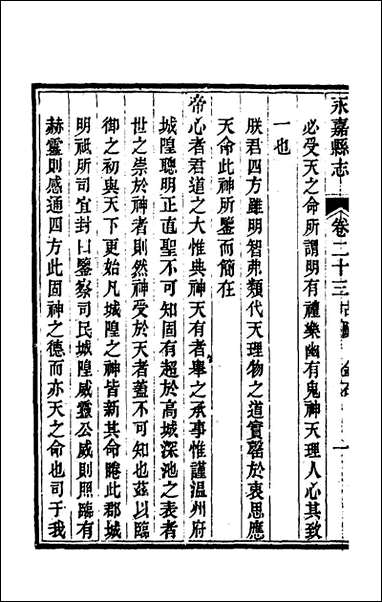 永嘉縣志 卷二十三 古蹟 金石 一
必受天之命所謂明有禮樂幽有鬼神天理人心其致
一也
朕君四方雖明智弗類代天理物之道實罄於衷思應
天命此神所鑒而簡在
帝心者君道之大惟典神天有者舉之承事惟謹温州府
城隍聰明正直聖不可知固有超於高城深池之表者
世之崇於神者則然神受於天者葢不可知也茲以臨
御之初與天下更始凡城隍之神皆新其命睠此郡城
明祇所司宜封曰鑒察司民城隍威靈公威則照臨有
赫靈則感通四方此固神之德而亦天之命也司于我